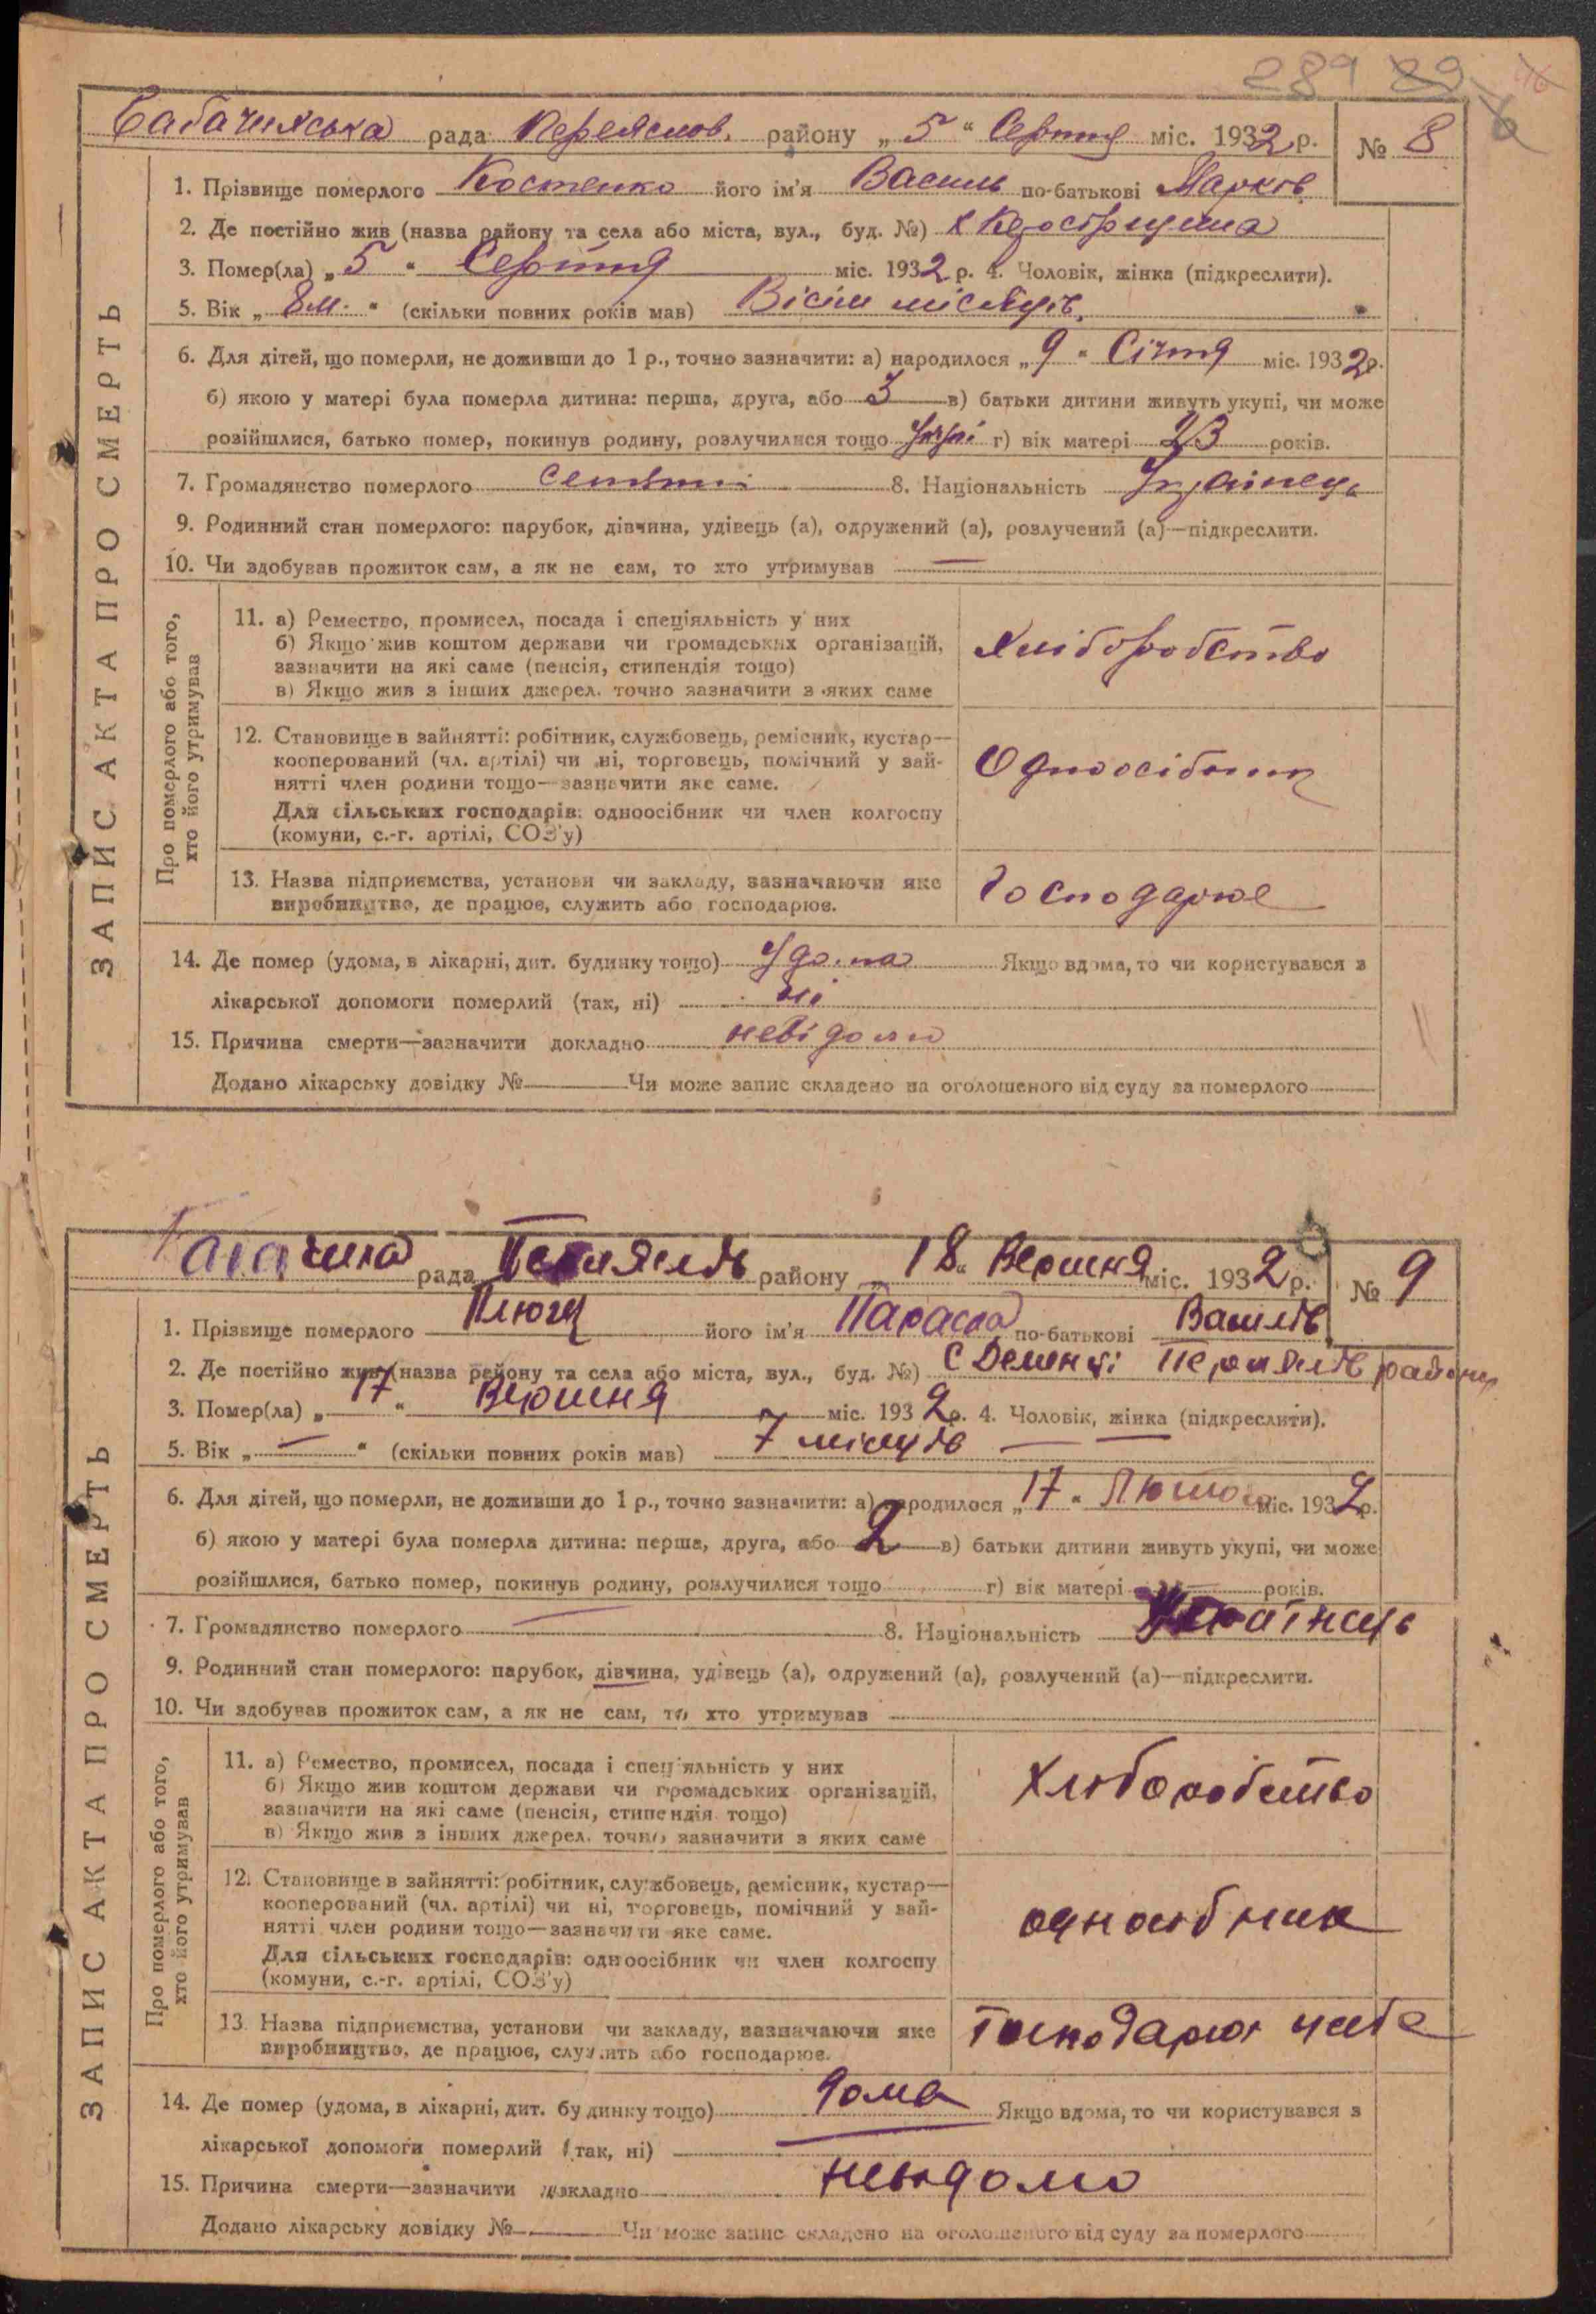 289 89 46
6
рада Переяслов. району „ 5 “ Серпня міс. 1932 р. № 8
ЗАПИС АКТА ПРО СМЕРТЬ
1. Прізвище померлого Костенко його ім'я Василь по-батькові Марків
2. Де постійно жив (назва району та села або міста, вул., буд. №) х
3. Помер(ла) „ 5 “ Серпня міс. 1932 р. 4. Чоловік, жінка (підкреслити).
5. Вік „ 8 м. “ (скільки повних років мав) Вісім місяців.
6. Для дітей, що померли, не доживши до 1 р., точно зазначити: а) народилося „ 9 “ Січня міс. 1932 р.
б) якою у матері була померла дитина: перша, друга, або 3 в) батьки дитини живуть укупі, чи може
розійшлися, батько помер, покинув родину, розлучилися тощо г) вік матері 23 років.
7. Громадянство померлого 8. Національність Українець
9. Родинний стан померлого: парубок, дівчина, удівець (а), одружений (а), розлучений (а)—підкреслити.
10. Чи здобував прожиток сам, а як не сам, то хто утримував —
Про померлого або того,
хто його утримував
11. а) Ремество, промисел, посада і спеціяльність у них
б) Якщо жив коштом держави чи громадських організацій,
зазначити на які саме (пенсія, стипендія тощо)
в) Якщо жив з інших джерел. точно зазначити з яких саме
Хліборобство
12. Становище в зайнятті: робітник, службовець, ремісник, кустар—
кооперований (чл. артілі) чи ні, торговець, помічний у зай-
нятті член родини тощо—зазначити яке саме.
Для сільських господарів: одноосібник чи член колгоспу
(комуни, с.-г. артілі, СОЗ'у)
Одноосібник
13. Назва підприємства, установи чи закладу, зазначаючи яке
виробництво, де працює, служить або господарює.
Господарює
14. Де помер (удома, в лікарні, дит. будинку тощо) Удома Якщо вдома, то чи користувався з
лікарської допомоги померлий (так, ні) ні
15. Причина смерти—зазначити докладно невідомо
Додано лікарську довідку № Чи може запис складено на оголошеного від суду за померлого
рада району „ 18 “ Вересня міс. 1932 р. № 9
ЗАПИС АКТА ПРО СМЕРТЬ
1. Прізвище померлого його ім'я Параска по-батькові Василів
2. Де постійно жив (назва району та села або міста, вул., буд. №) с Деменці району
3. Помер(ла) „ 17 “ Вересня міс. 1932 р. 4. Чоловік, жінка (підкреслити).
5. Вік „ — “ (скільки повних років мав) 7 місяців —
6. Для дітей, що померли, не доживши до 1 р., точно зазначити: а) народилося „ 17 “ Лютого міс. 1932 р.
б) якою у матері була померла дитина: перша, друга, або 2 в) батьки дитини живуть укупі, чи може
розійшлися, батько помер, покинув родину, розлучилися тощо г) вік матері — років.
7. Громадянство померлого — 8. Національність Українець
9. Родинний стан померлого: парубок, дівчина, удівець (а), одружений (а), розлучений (а)—підкреслити.
10. Чи здобував прожиток сам, а як не сам, то хто утримував
Про померлого або того,
хто його утримував
11. а) Ремество, промисел, посада і спеціяльність у них
б) Якщо жив коштом держави чи громадських організацій,
зазначити на які саме (пенсія, стипендія тощо)
в) Якщо жив з інших джерел. точно зазначити з яких саме
Хліборобство
12. Становище в зайнятті: робітник, службовець, ремісник, кустар—
кооперований (чл. артілі) чи ні, торговець, помічний у зай-
нятті член родини тощо—зазначити яке саме.
Для сільських господарів: одноосібник чи член колгоспу
(комуни, с.-г. артілі, СОЗ'у)
одноосібник
13. Назва підприємства, установи чи закладу, зазначаючи яке
виробництво, де працює, служить або господарює.
14. Де помер (удома, в лікарні, дит. будинку тощо) дома Якщо вдома, то чи користувався з
лікарської допомоги померлий (так, ні)
15. Причина смерти—зазначити докладно невідомо
Додано лікарську довідку № Чи може запис складено на оголошеного від суду за померлого